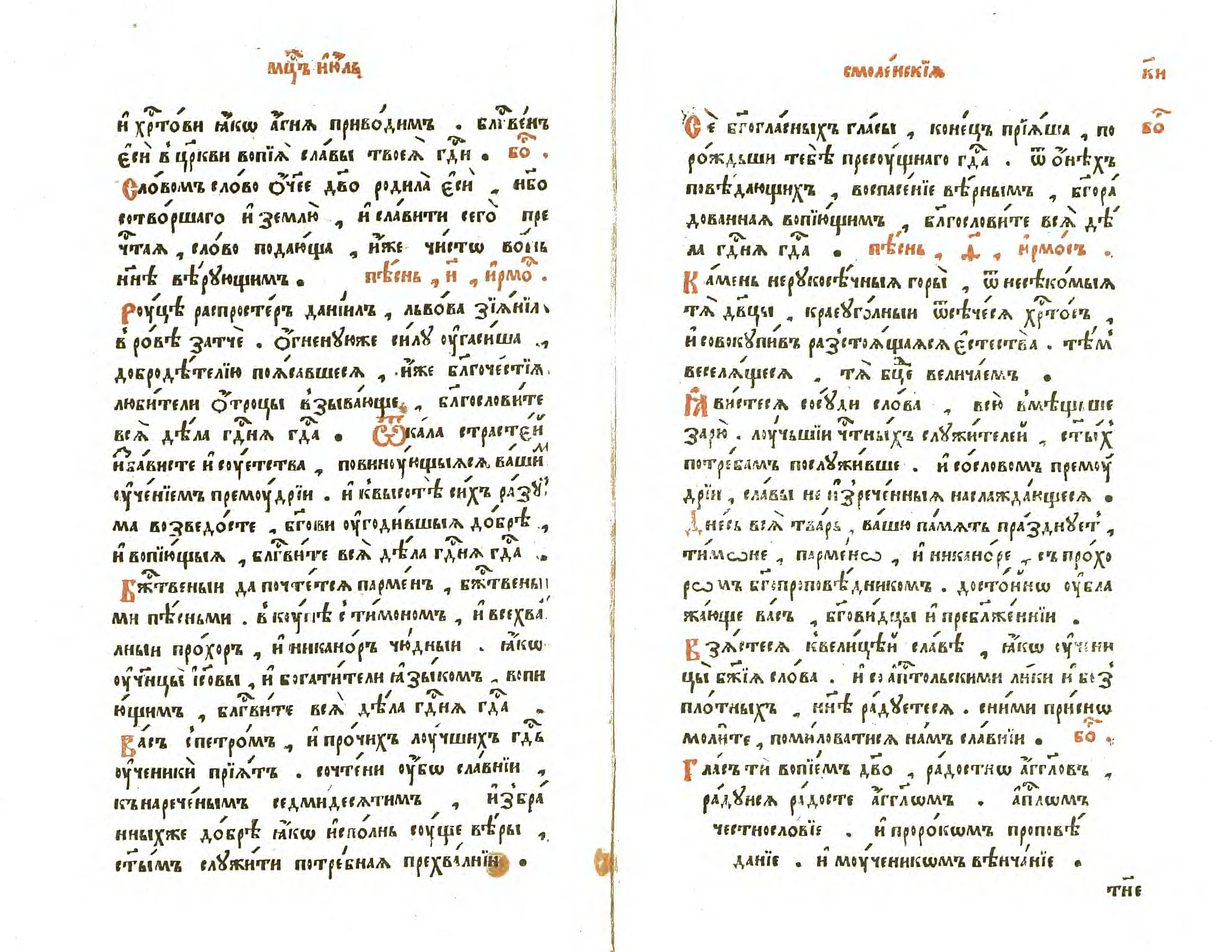 мц҃ъ и҆ю҆́ль
и҆ хрⷭ҇то́ви ꙗ҆́кѡ а҆́гня приво́димъ . блгⷭ҇ве́нъ
є҆сѝ в҆ цр҃кви вопїѧ̀ сла́вы твоеѧ̀ гдⷭ҇и . бо̑ .
Сло́вомъ сло́во ѻ҆́чее дв҃о родила̀ є҆сѝ , нб҃о
сотво́ршаго и҆ зе́млю , и҆ сла́вити сего̀ пре
чⷭ҇тая , сло́во подаю́ща , и҆́же чи́стѡ во́нь
нн҃ѣ вѣ́рующимъ . пѣ́снь , и҃ , и҆рмо̑ .
Роу́цѣ распросте́ръ данїи́лъ , льво́ва зїѧ́нїѧ
в҆ ро́вѣ затчѐ . ѻ҆́гненуюже си́лу оу҆гаси́ша ,
добродѣ́телїю поѧ́савшеся , и҆́же бл҃гоче́стїѧ
люби́тели ѻ҆́троцы в҆зыва́юще , бл҃гослови́те
всѧ̀ дѣ́ла гдⷭ҇нѧ гдⷭ҇а . Ѿкала страсте́й
и҆ за́висте и҆ соу́етства , повиноу́ющыяся ва́ши
оу҆че́нїемъ премоу́дрїи . и҆ к҆высотѣ̀ си́хъ ра́зу
ма возведо́сте , бг҃ови оу҆годи́вшыѧ до́брѣ ,
и҆ вопїю́щыѧ , блгⷭ҇ви́те всѧ̀ дѣ́ла гдⷭ҇нѧ гдⷭ҇а .
Бжⷭ҇твеныи да почте́тся парме́нъ , бжⷭ҇твены
ми пѣ́сньми . в҆коу́пѣ с҆ ти́мономъ , и҆ всехва́
лныи про́хоръ , и҆ никано́ръ чю́дныи . ꙗ҆́кѡ
оу҆чн҃цы̀ і҆с҃овы , и҆ богати́тели ꙗ҆зы́комъ , вопи
ю҆́щимъ , блгⷭ҇ви́те всѧ̀ дѣ́ла гдⷭ҇нѧ гдⷭ҇а .
Ва́съ с҆петро́мъ , и҆ про́чихъ лоу́чшихъ гдⷭ҇ь
оу҆ченикѝ прїѧ́тъ . сочте́ни оу҆́бѡ сла́внїи ,
къ нарече́нымъ седмидесѧ́тимъ , и҆збра́
нныхже до́брѣ ꙗ҆́кѡ и҆спо́лнь соу́ще вѣ́ры ,
ст҃ы́мъ слу́жити потре́бная прехва́лнїи .
смоле́нскїѧ
к҃и
бо̑
Сѐ бг҃огла́сныхъ гла́сы , коне́цъ прїѧ́ша , по
ро́ждьши тебѣ̀ пресоу́щнаго гдⷭ҇а . ѿ ѻ҆́нѣхъ
повѣ́дающихъ , воспасе́нїе вѣ́рнымъ , бг҃ора́
дованная вопїю́щимъ , бл҃гослови́те всѧ̀ дѣ́
ла гдⷭ҇нѧ гдⷭ҇а . пѣ́снь , д҃ , и҆рмо́съ .
Ка́мень нерукосѣ́чныѧ горы̀ , ѿ несѣко́мыѧ
тѧ̀ дв҃цы , краеуго́лныи ѿсѣче́сѧ хрⷭ҇то́съ ,
и҆ совокупи́въ разстоѧ́щаѧсѧ є҆стества̀ . тѣ́м
веселѧ́щеся , тѧ̀ бц҃е велича́емъ .
Ꙗ҆ви́стеся сосу́ди сло́ва , всю̀ в҆мѣ́щьше
зарю̀ . лоу́чьшїи чтⷭ҇ныхъ слу́жителей , ст҃ы́х
потре́бамъ послужи́вше . и҆ со сло́вомъ премоу́
дрїи , сла́вы не и҆зрече́нныѧ наслажда́ющеся .
Дне́сь всѧ̀ тва́рь , ва́шю па́мять пра́зднует ,
тимѡ́не , парме́нѡ , и҆ никано́ре , съ про́хо
рѡмъ бг҃опроповѣ́дникомъ . досто́йнѡ оу҆бла
жа́юще ва́съ , бг҃ови́дцы и҆ преблаже́ннїи .
Взѧ́стеся к҆вели́цѣй сла́вѣ , ꙗ҆́кѡ оу҆чени
цы̀ бж҃їѧ сло́ва . и҆ со а҆пⷭ҇тольскими ли́ки и҆ без
пло́тныхъ , нн҃ѣ ра́дуетеся . с҆ни́ми при́снѡ
моли́те , поми́loватися на́мъ сла́внїи . бо̑ .
Гла́съ тѝ вопїе́мъ дв҃о , ра́достнѡ а҆́гг҃ловъ ,
ра́дуися ра́досте а҆́гг҃лѡмъ . а҆пⷭ҇лѡмъ
честносло́вїе . и҆ проро́кѡмъ проповѣ́
данїе . и҆ моу́ченикѡмъ вѣнча́нїе .
тн҃е